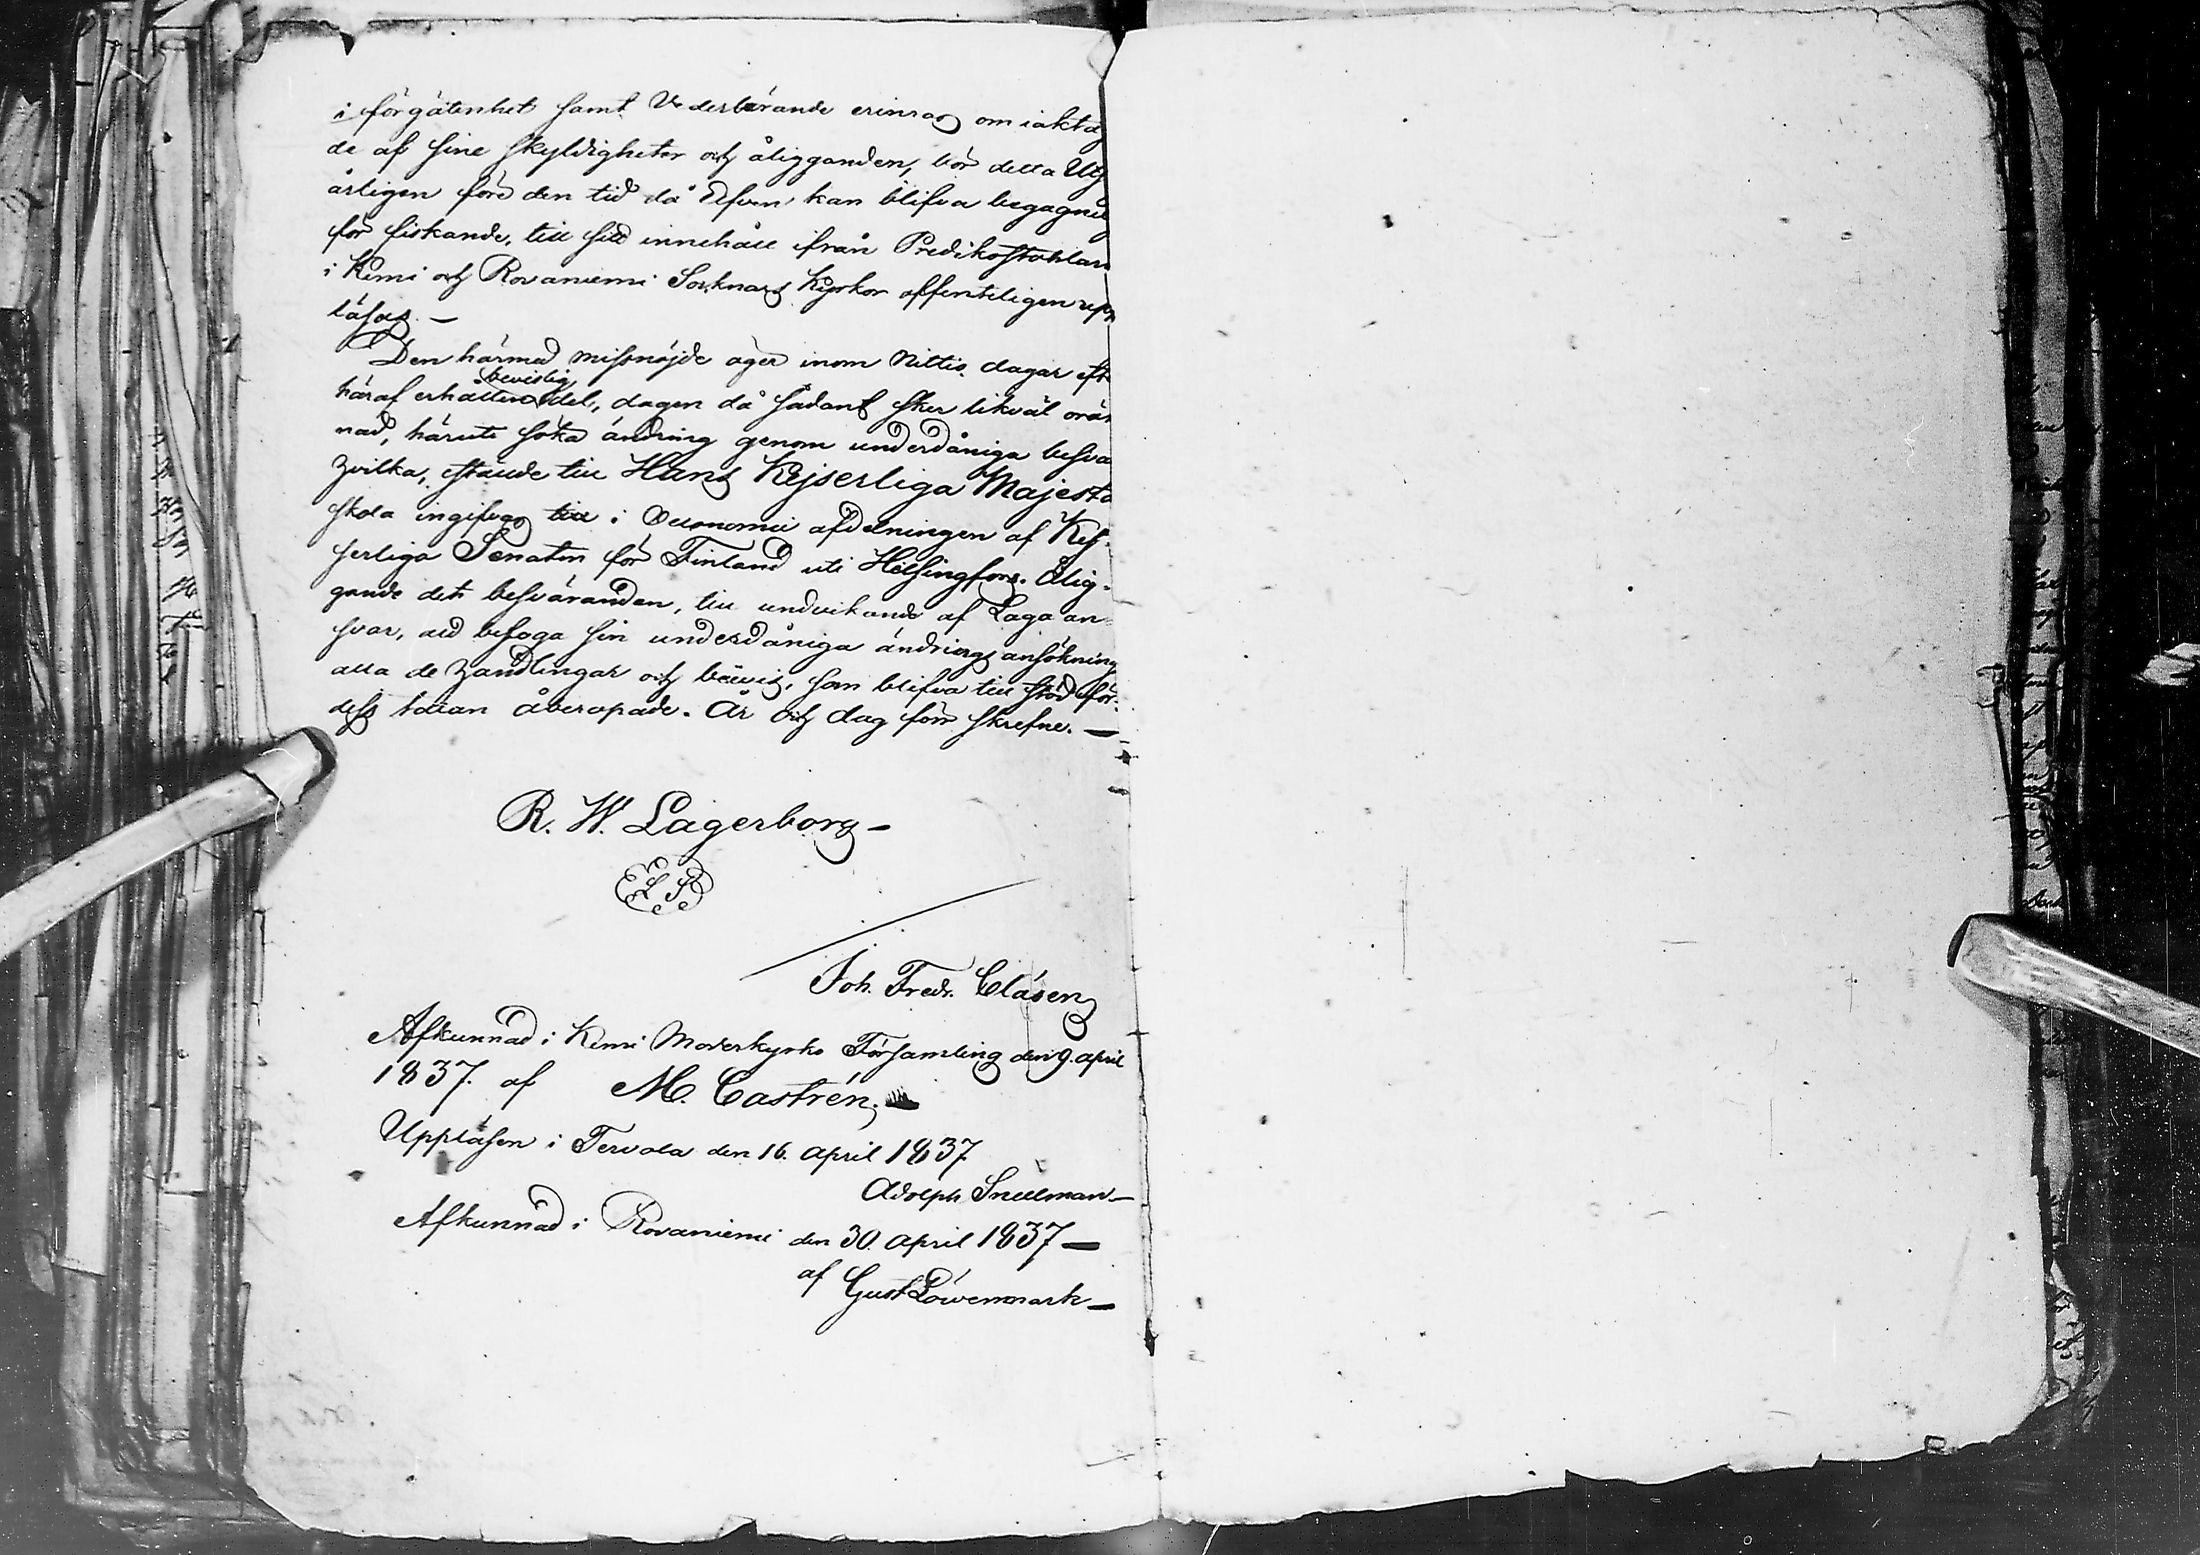 i förgätenhet samt Vederbörande erinras om iaktag
de af sine skyldigheter och åligganden, bör detta Uts
årligen före den tid då Elfven kan blifva begagnad
för fiskande, till sitt innehåll ifrån Predikostolan
i Kemi och Rovaniemi Socknars Kyrkor offenteligen upp
läsas. —
Den härmed missnöjde äger inom Nittio dagar eft
bevislig
häraf erhållen del, dagen då sådant sker likväl oräk
nad, häruti söka ändring genom underdåniga besvä
hvilka, stälde till Hans Kejserliga Majestä
skola ingifvas till i Oeconomie afdelningen af Kej-
serliga Senaten för Finland uti Helsingfors. Ålig-
gande det besväranden, till undvikande af Laga an
svar, att bifoga sin underdåniga ändrings ansökning
alla de handlingar och bevis, som blifva till stöd för
dess talan åberopade. År och dag som skrefne. —
R. W. Lagerborg —
L S
Joh. Fredr. Clasen
Afkunnad i Kemi Moderkyrko Församling den 9. april
1837. af M. Castrén. —
Uppläsen i Tervola den 16. april 1837
Adolph Snellman —
Afkunnad i Rovaniemi den 30. april 1837 —
af Gust Löwenmark —